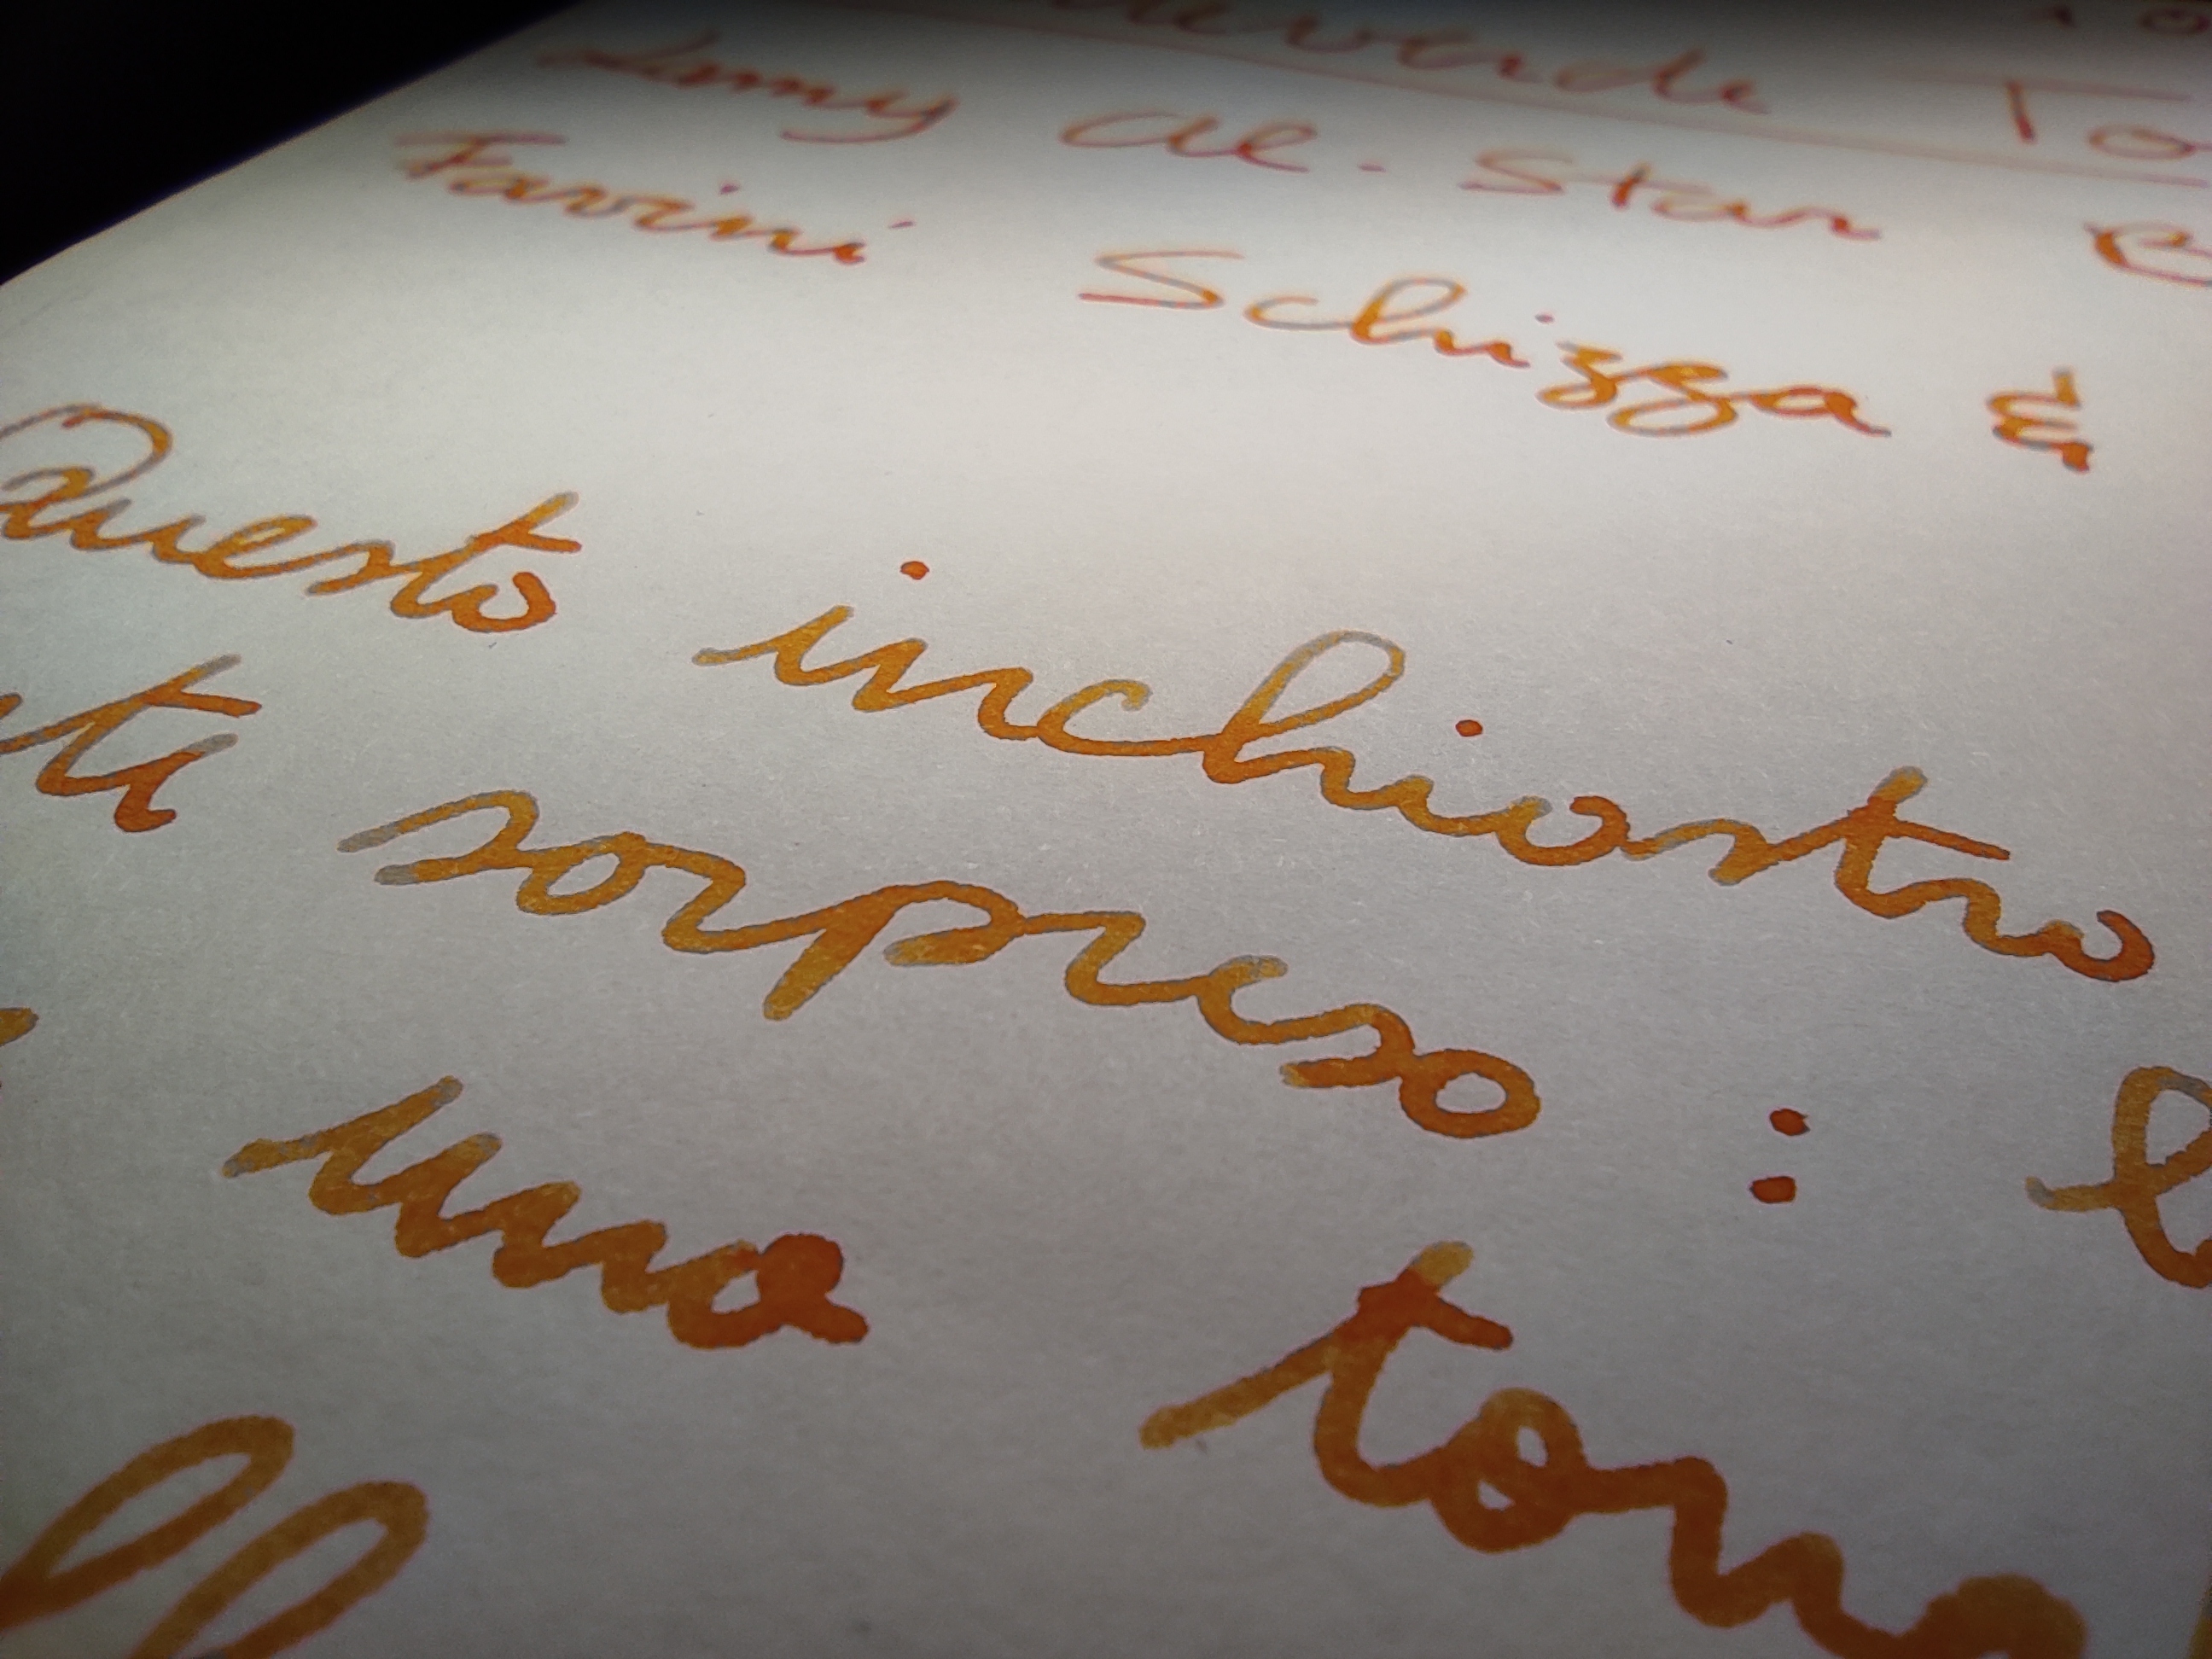 Lamy Al-Star
Favini Schizza &
Questo inchiostro
sorpreso :
una tona